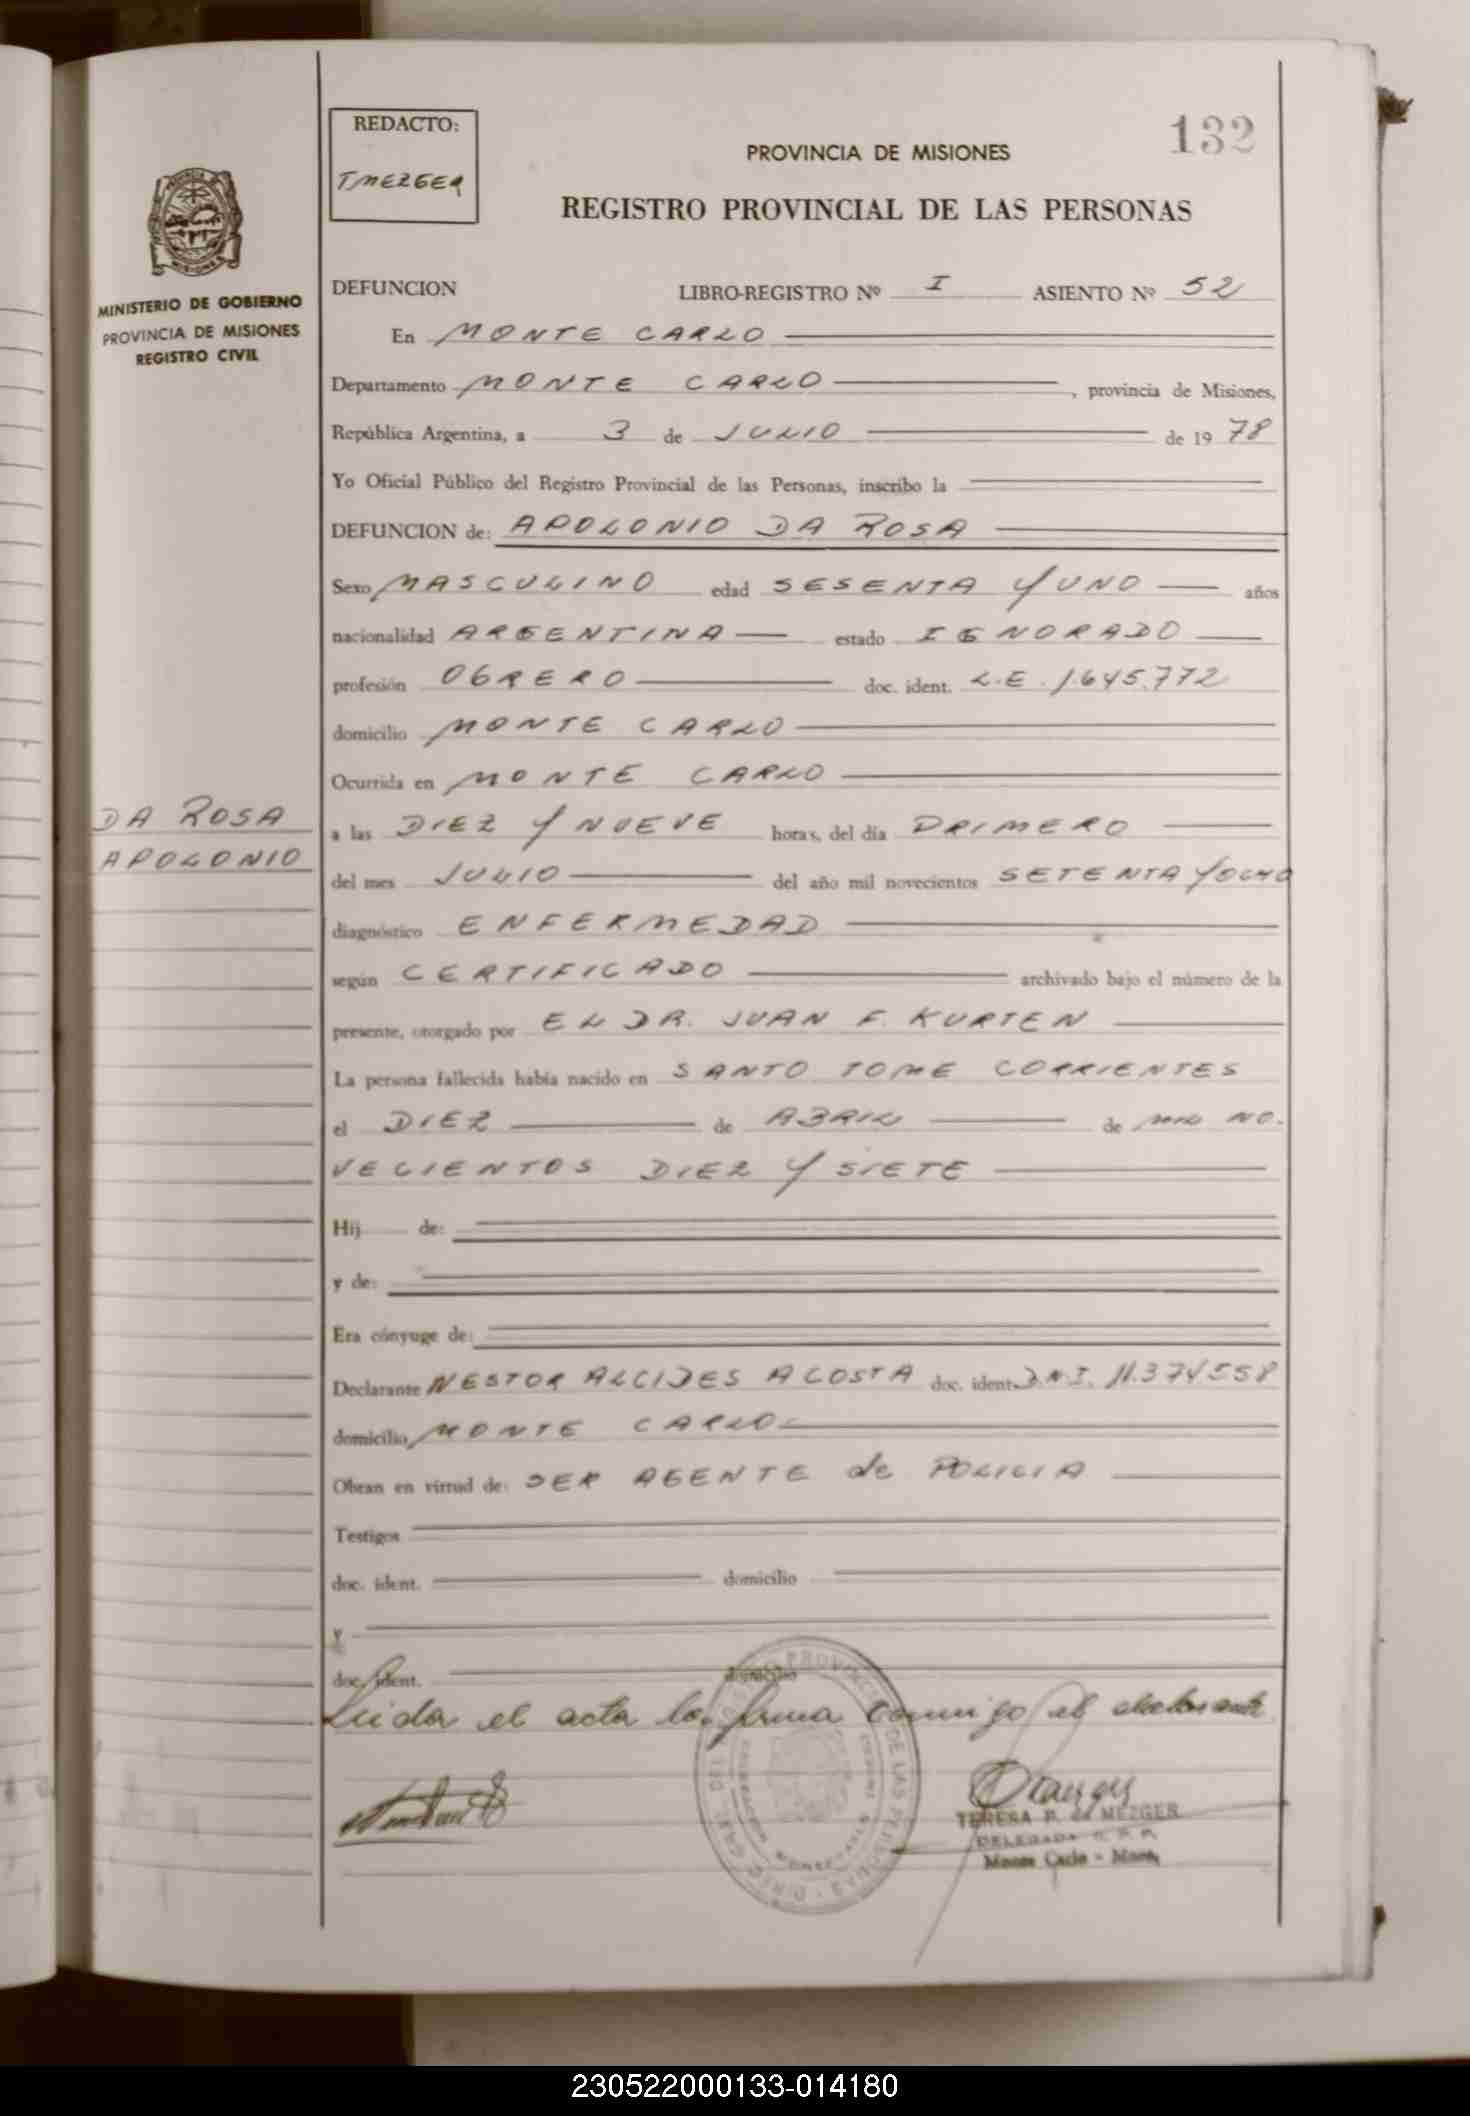 132
REDACTO:
T. MEZGER
PROVINCIA DE MISIONES
REGISTRO PROVINCIAL DE LAS PERSONAS
MINISTERIO DE GOBIERNO
PROVINCIA DE MISIONES
REGISTRO CIVIL
DEFUNCION LIBRO-REGISTRO Nº I ASIENTO Nº 52
En MONTE CARLO
Departamento MONTE CARLO, provincia de Misiones,
República Argentina, a 3 de JULIO de 1978
Yo Oficial Público del Registro Provincial de las Personas, inscribo la
DEFUNCION de: APOLONIO DA ROSA
Sexo MASCULINO edad SESENTA Y UNO años
nacionalidad ARGENTINA estado IGNORADO
profesión OBRERO doc. ident. L.E. 1.645.772
domicilio MONTE CARLO
Ocurrida en MONTE CARLO
DA ROSA
APOLONIO
a las DIEZ Y NUEVE horas, del día PRIMERO
del mes JULIO del año mil novecientos SETENTA Y OCHO
diagnóstico ENFERMEDAD
según CERTIFICADO archivado bajo el número de la
presente, otorgado por EL DR. JUAN F. KURTEN
La persona fallecida había nacido en SANTO TOME CORRIENTES
el DIEZ de ABRIL de MIL NO.
VECIENTOS DIEZ Y SIETE
Hij de:
y de:
Era cónyuge de:
Declarante NESTOR ALCIDES ACOSTA doc. ident. D.N.I. 11.374.558
domicilio MONTE CARLO
Obran en virtud de: SER AGENTE de POLICIA
Testigos
doc. ident. domicilio
y
doc. ident. domicilio
Leida el acta la firma conmigo el declarante
TERESA P. de MEZGER
DELEGADA R. P. P.
Monte Carlo - Mnes.
230522000133-014180